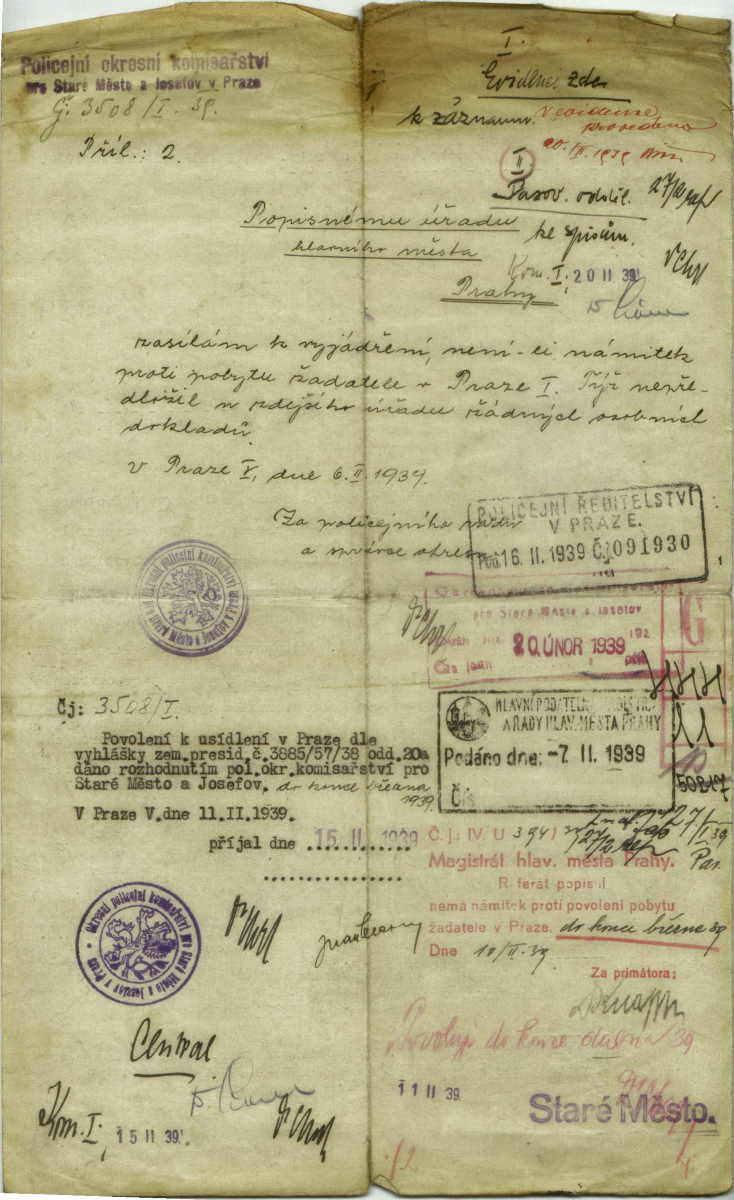 Policejní okresní komisařství
pro Staré Město a Josefov v Praze
Č. 3508/I. 39.
Příl.: 2.
I.
Evidenci zde
k záznamu.
v evidenci
provedeno
20./II. 1939
II
Pasov. odděl.
ke spisům.
Popisnému úřadu
hlavního města
Prahy
Kom. I.
20 II 39
zasílám k vyjádření, není-li námitek
proti pobytu žadatele v Praze I. Týž nepře-
dložil u zdejšího úřadu žádných osobních
dokladů.
V Praze V, dne 6. II. 1939.
Za policejního radu
a správce okresu
POLICEJNÍ ŘEDITELSTVÍ
V PRAZE.
16. II. 1939 Čj 091930
pro Staré Město a Josefov
20. ÚNOR 1939
G
HLAVNÍ PODATELNA
A RADY HLAV. MĚSTA PRAHY
Podáno dne: -7. II. 1939
50817
Čís.
Čj: 3508/I.
Povolení k usídlení v Praze dle
vyhlášky zem.presid.č.3885/57/38 odd.20a
dáno rozhodnutím pol.okr.komisařství pro
Staré Město a Josefov. do konce března
1939.
V Praze V.dne 11.II.1939.
příjal dne 15 II 1939
Č. j.: IV. U 3941
Magistrát hlav. města Prahy.
R ferát popisní
nemá námitek proti povolení pobytu
žadatele v Praze. do konce března 39
Dne 10/II. 39.
Za primátora:
Okresní policejní komisařství pro Staré Město a Josefov v Praze
Central
Povoluji do konce dubna 39.
11 II 39.
Staré Město.
Kom. I.
15 II 39.